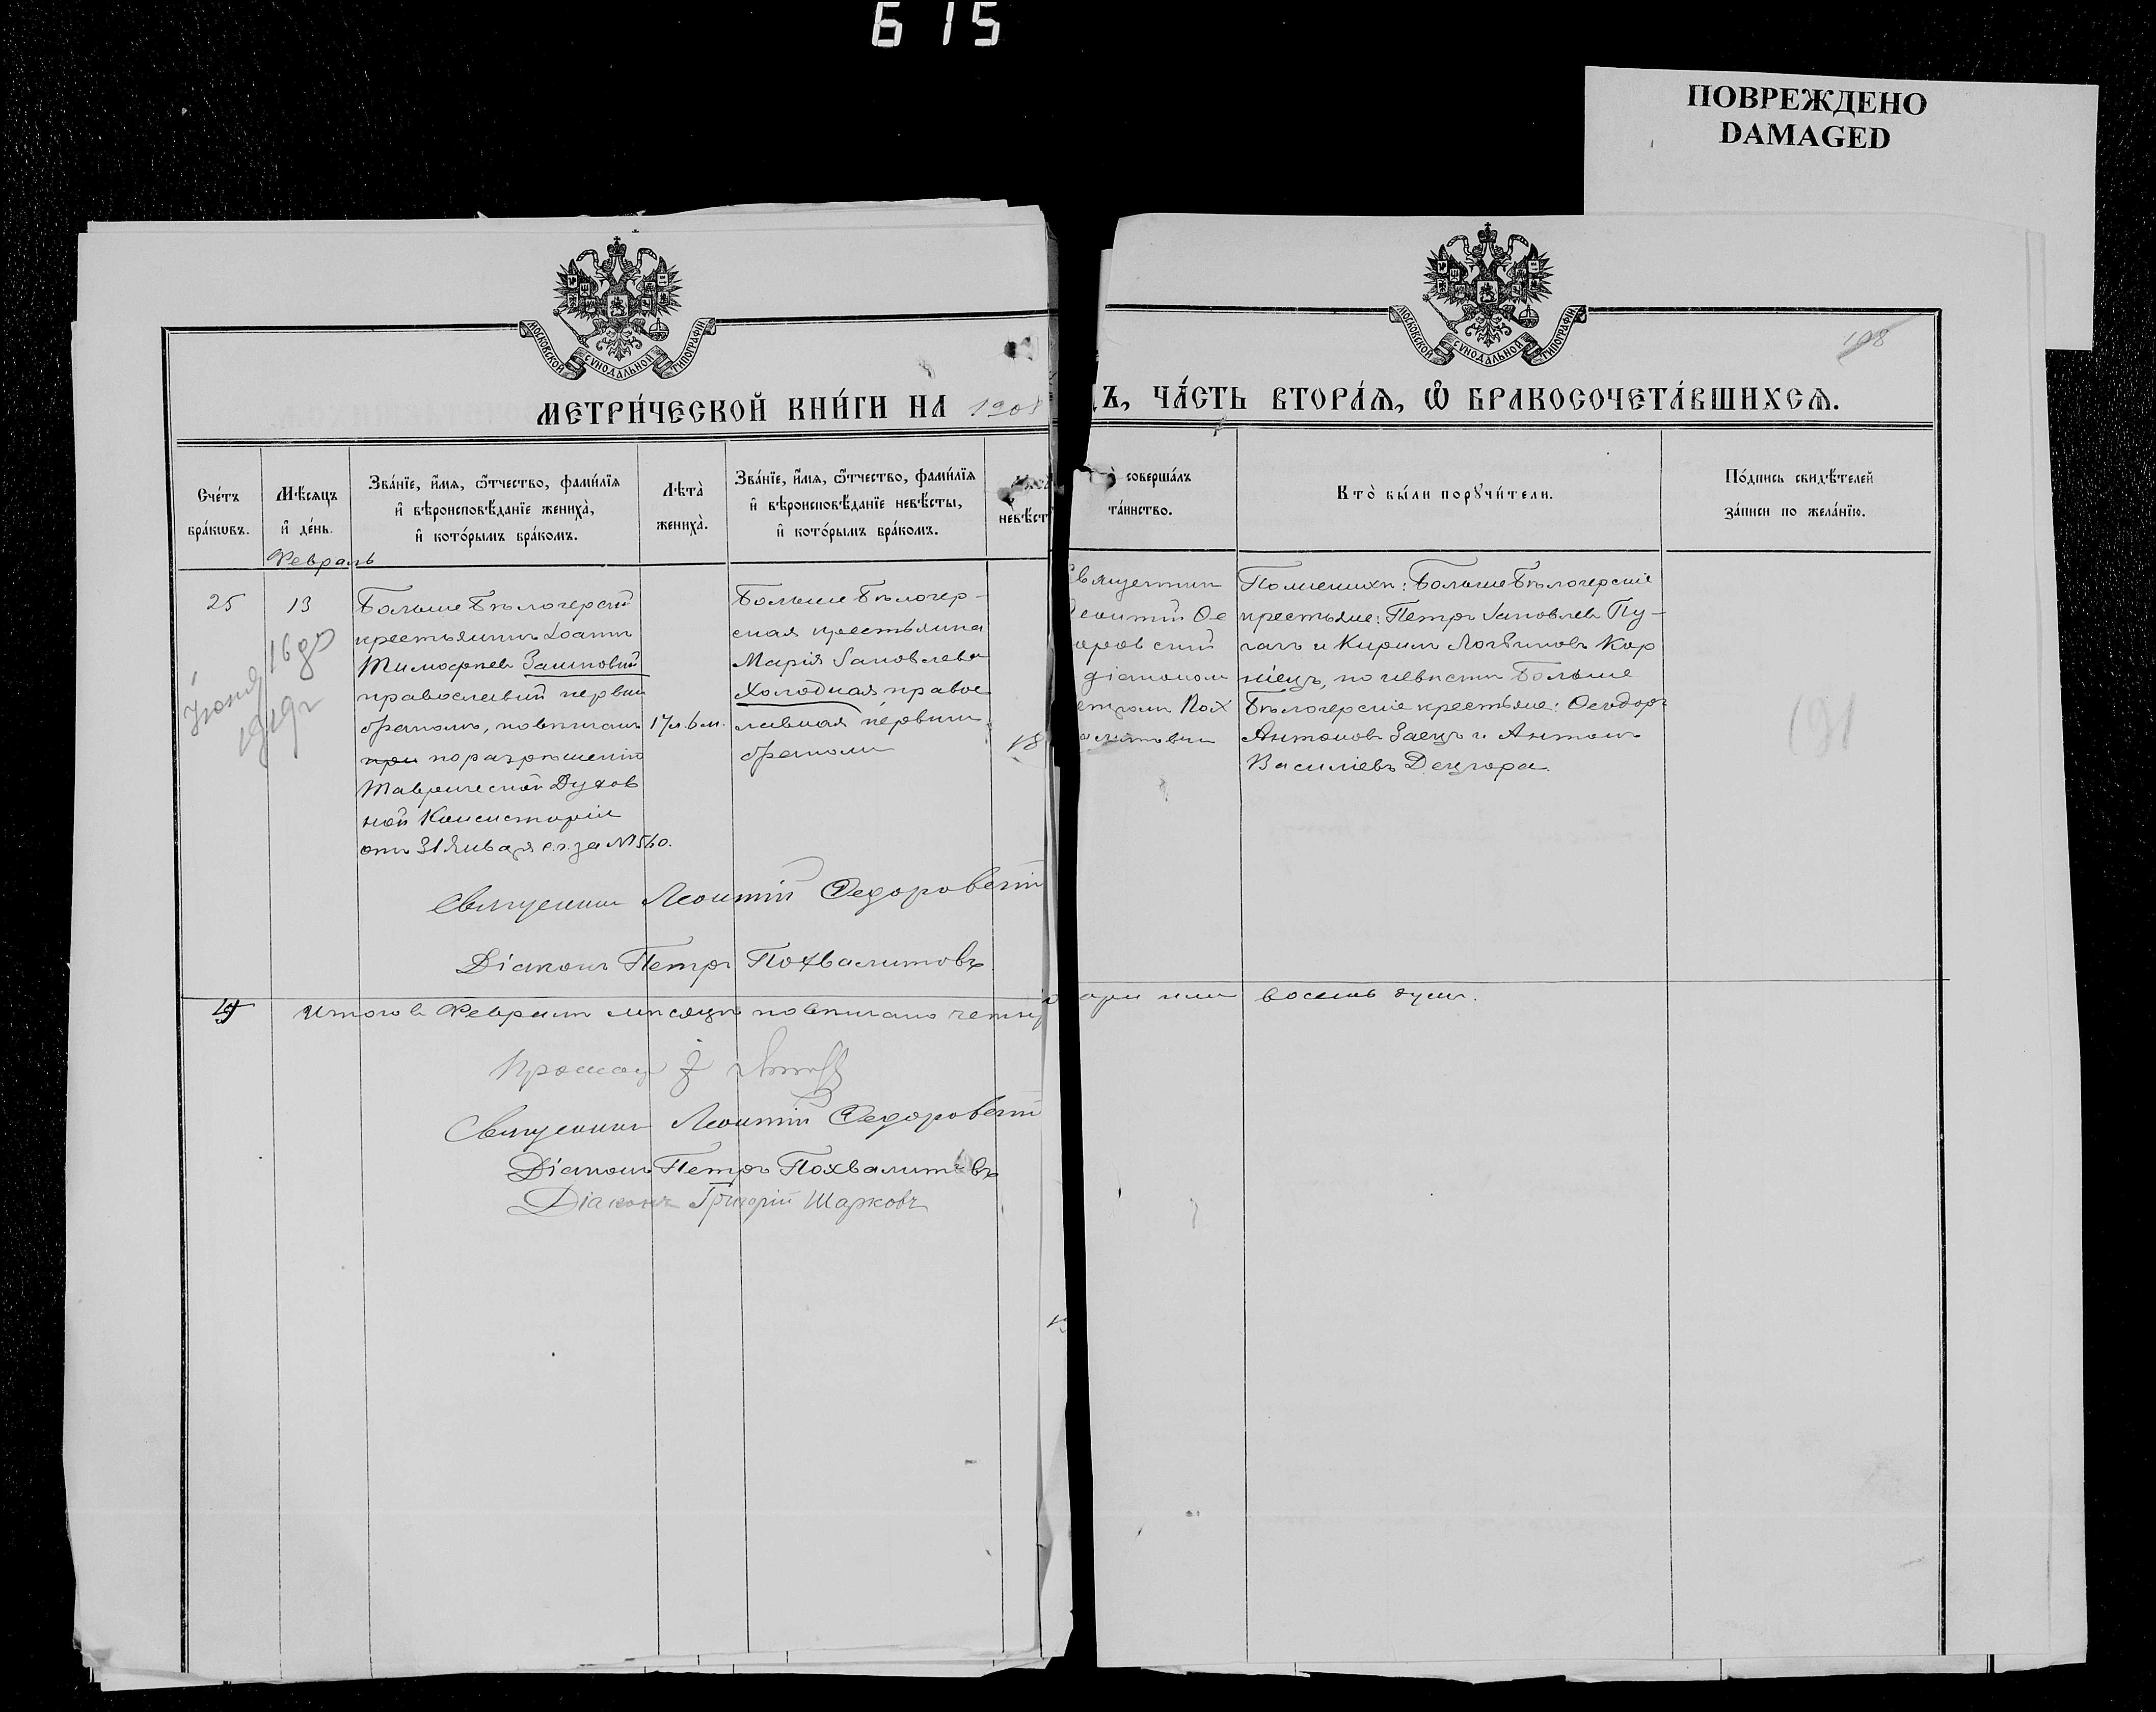 615
ПОВРЕЖДЕНО
DAMAGED
МОСКОВСКОЙ СѴНОДАЛЬНОЙ ТИПОГРАФІИ
МОСКОВСКОЙ СѴНОДАЛЬНОЙ ТИПОГРАФІИ
108
МЕТРИ́ЧЕСКОЙ КНИ́ГИ НА 1908
ДЪ, ЧА́СТЬ ВТОРА́Ѧ, Ѡ҆ БРАКОСОЧЕТА́ВШИХСѦ.
Сче́тъ
бра́кωвъ.
Мѣ́сяцъ
и҆ де́нь.
Зва́нїе, и҆́мя, ѻ҆́тчество, фами́лїя
и҆ вѣроисповѣ́данїе жениха̀,
и҆ кото́рымъ бра́комъ.
Лѣта̀
жениха̀.
Зва́нїе, и҆́мя, ѻ҆́тчество, фами́лїя
и҆ вѣроисповѣ́данїе невѣ́сты,
и҆ кото́рымъ бра́комъ.
невѣ́ст
соверша́лъ
та́инство.
Кто̀ бы́ли порꙋчи́тели.
По́дпись свидѣ́телей
за́писи по жела́нїю.
Февраль
25
13
Больше Бѣлозерскій
крестьянинъ Іоаннъ
Тимофѣевъ
православный первым
бракомъ, повѣнчанъ
при по разрѣшенію
Таврической Духов
ной Консисторіи
отъ 31 Января с.г. за № 560.
17 л. 6 м.
Больше Бѣлозер-
ская крестьянка
Марія Яковлева
Холодная правос
лавная первымъ
бракомъ
18
Священник
Леонтій Ѳе
доровскій
діакономъ
етромъ Пох
валитовым
По женихѣ: Больше Бѣлозерскіе
крестьяне: Петръ Яковлевъ Пу-
гачъ и Кирилъ Логвиновъ Кор
ніецъ, по невѣстѣ Больше
Бѣлозерскіе крестьяне: Ѳеодоръ
Антоновъ Заецъ и Антонъ
Василіевъ
Іюня 16 дня
1919 г
191
Священникъ Леонтій Федоровскій
Діаконъ Петръ Похвалитовъ
Итого въ Февралѣ мѣсяцѣ повѣнчано четыр
восемь душъ.
Священникъ Леонтій Федоровскій
Діаконъ Петръ Похвалитовъ
Діаконъ Григорій Шарковъ